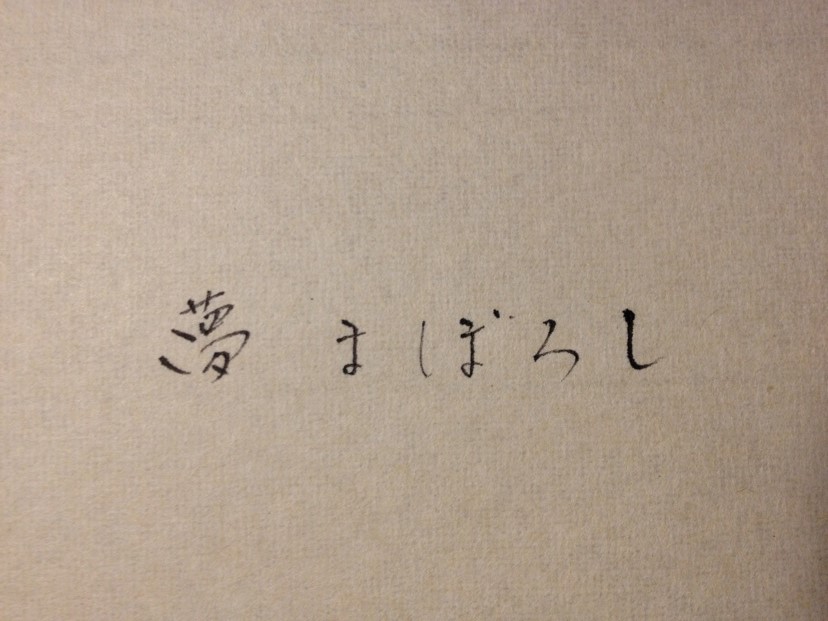 夢 まぼろし